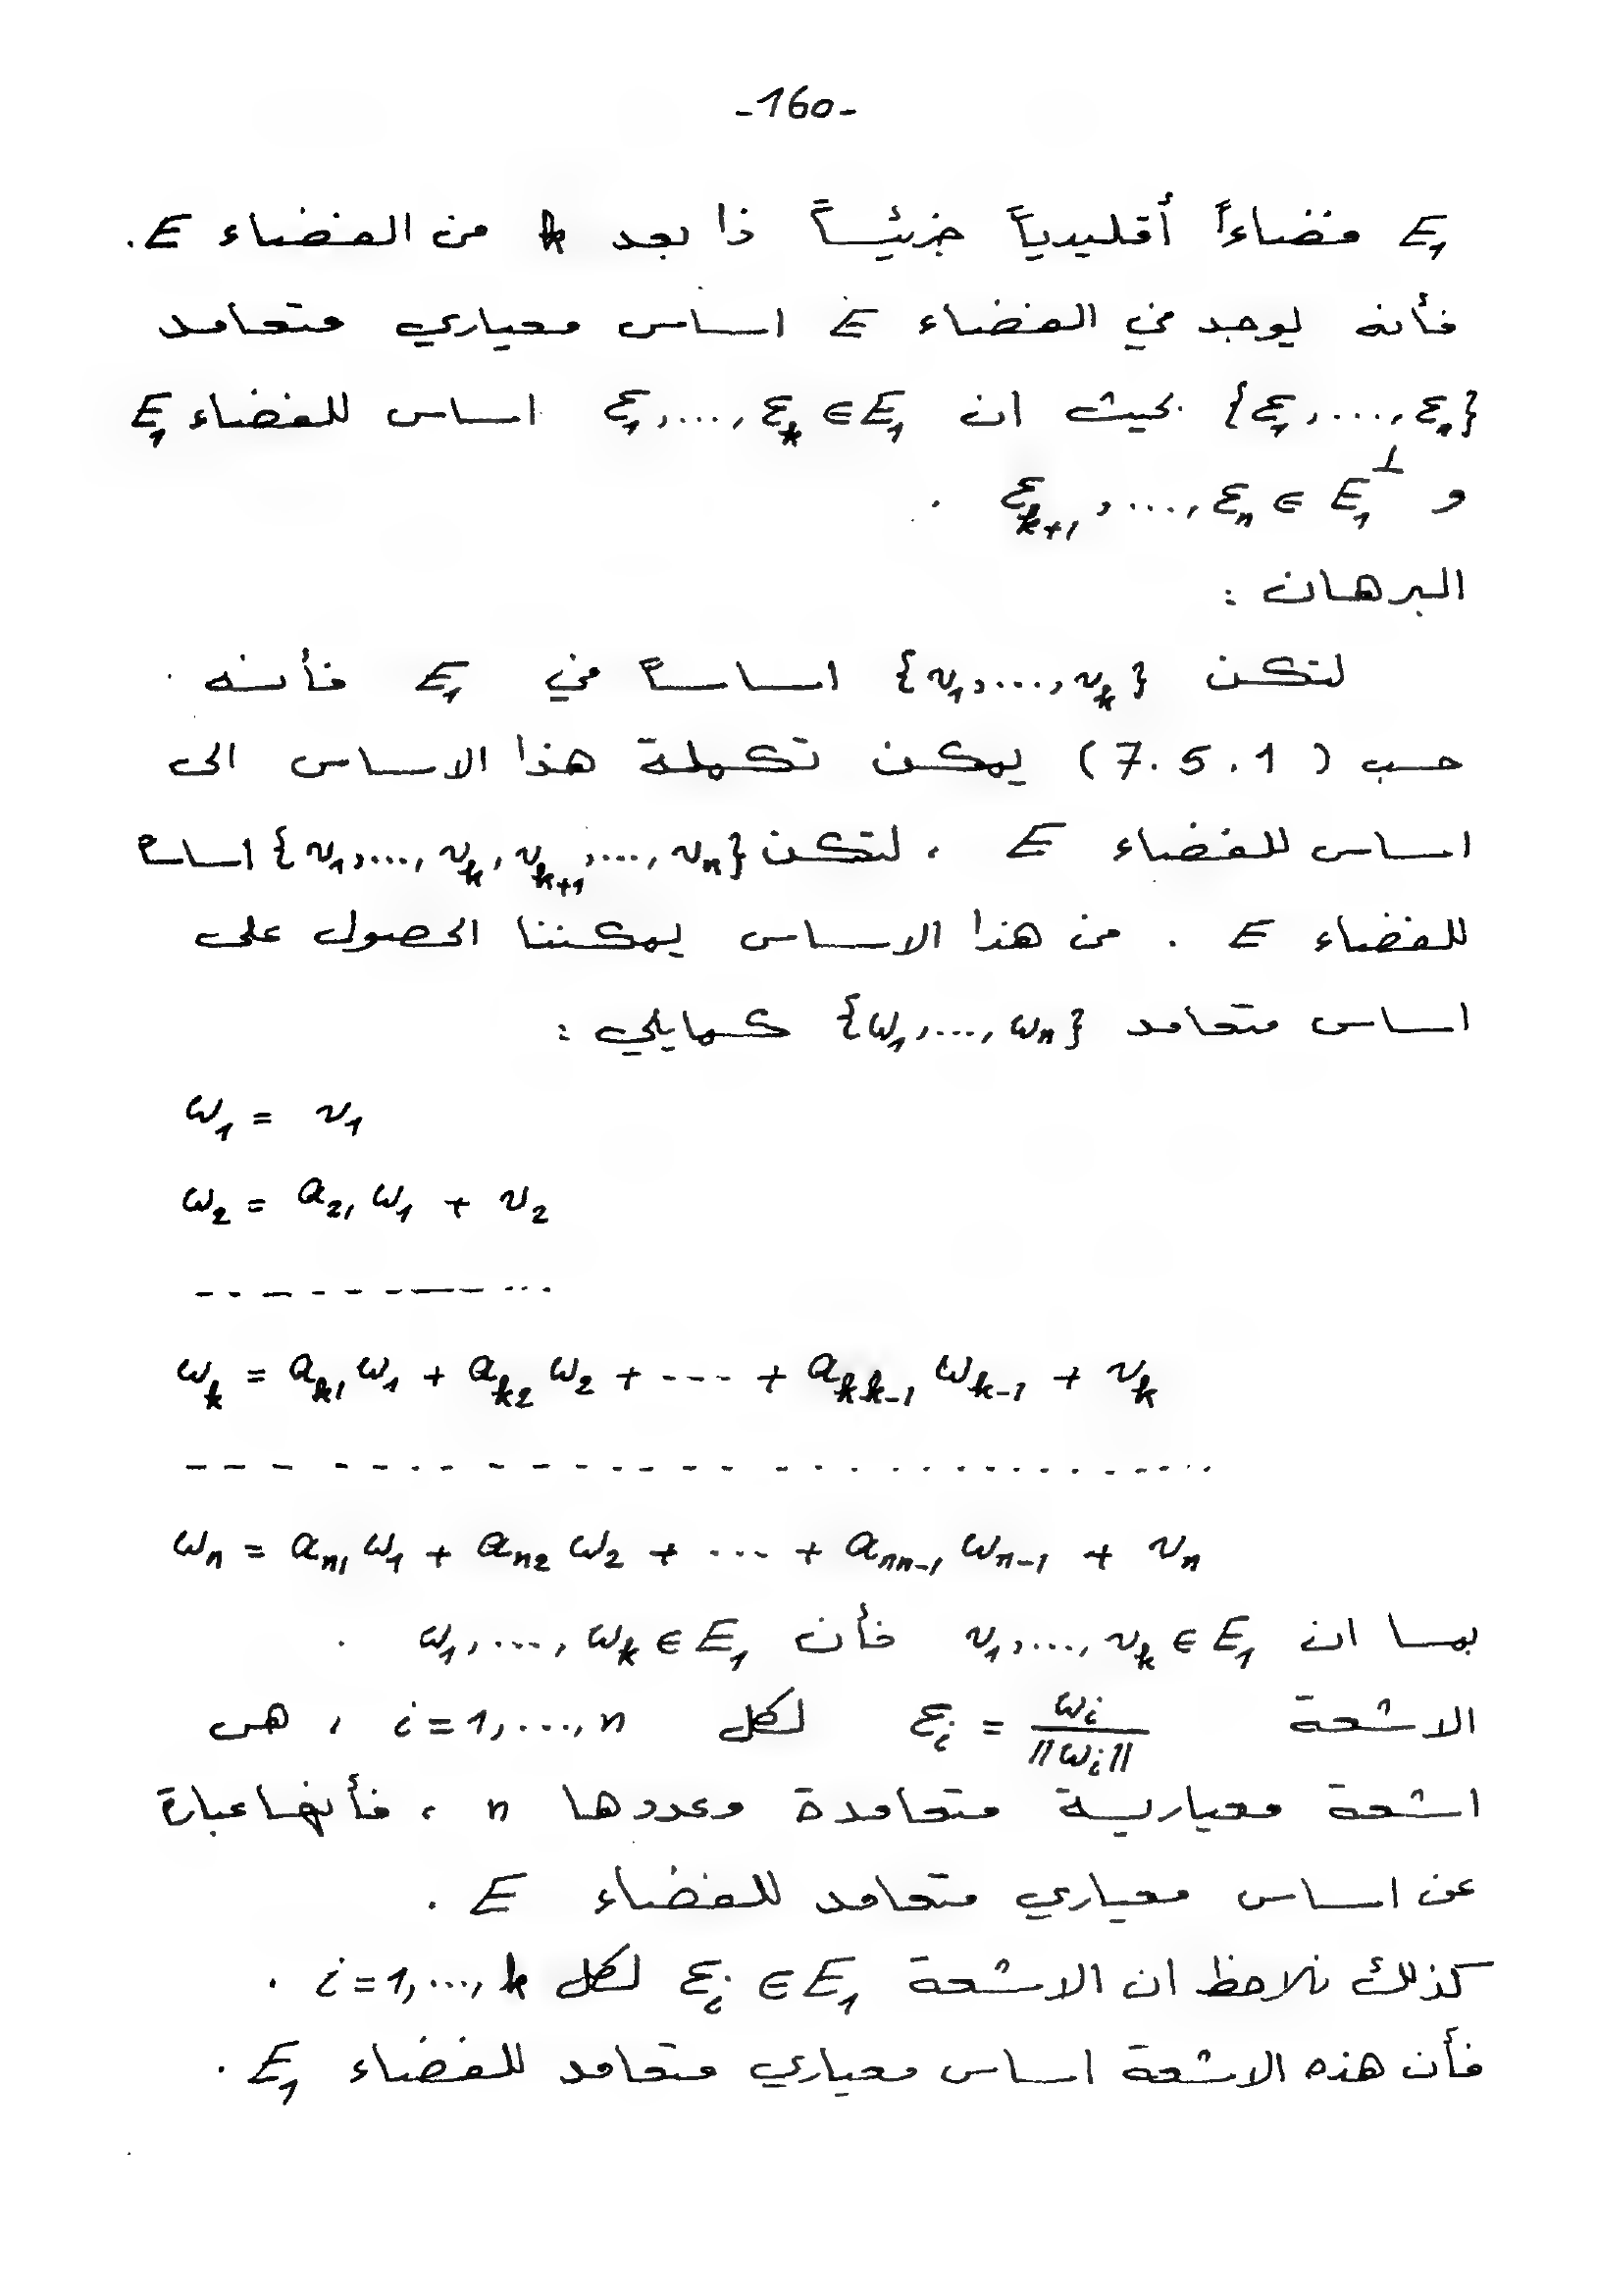 -160-
E₁ فضاءاً أقليدياً جزئيـاً ذا بعد k من الفضاء E.
فأنه يوجد في الفضاء E اساس معياري متعامد
{ε₁,...,εₙ} بحيث ان ε₁,...,εₖ ∈ E₁ اساس للفضاء E₁
و εₖ₊₁,...,εₙ ∈ E₁^⊥ .
البرهان :
لتكن {v₁,...,vₖ} اساساً في E₁ فأنه
حسب (7.5.1) يمكن تكملة هذا الاساس الى
اساس للفضاء E ، لتكن {v₁,...,vₖ,vₖ₊₁,...,vₙ} اساساً
للفضاء E . من هذا الاساس يمكننا الحصول على
اساس متعامد {ω₁,...,ωₙ} كمايلي :
ω₁ = v₁
ω₂ = a₂₁ω₁ + v₂
------------
ωₖ = aₖ₁ω₁ + aₖ₂ω₂ + --- + aₖₖ₋₁ωₖ₋₁ + vₖ
------------------------
ωₙ = aₙ₁ω₁ + aₙ₂ω₂ + ... + aₙₙ₋₁ωₙ₋₁ + vₙ
بما ان v₁,...,vₖ ∈ E₁ فأن ω₁,...,ωₖ ∈ E₁ .
الاشعة εᵢ = ωᵢ/||ωᵢ|| لكل i=1,...,n ، هي
اشعة معيارية متعامدة وعددها n ، فأنها عبارة
عن اساس معياري متعامد للفضاء E .
كذلك نلاحظ ان الاشعة εᵢ ∈ E₁ لكل i=1,...,k .
فأن هذه الاشعة اساس معياري متعامد للفضاء E₁ .